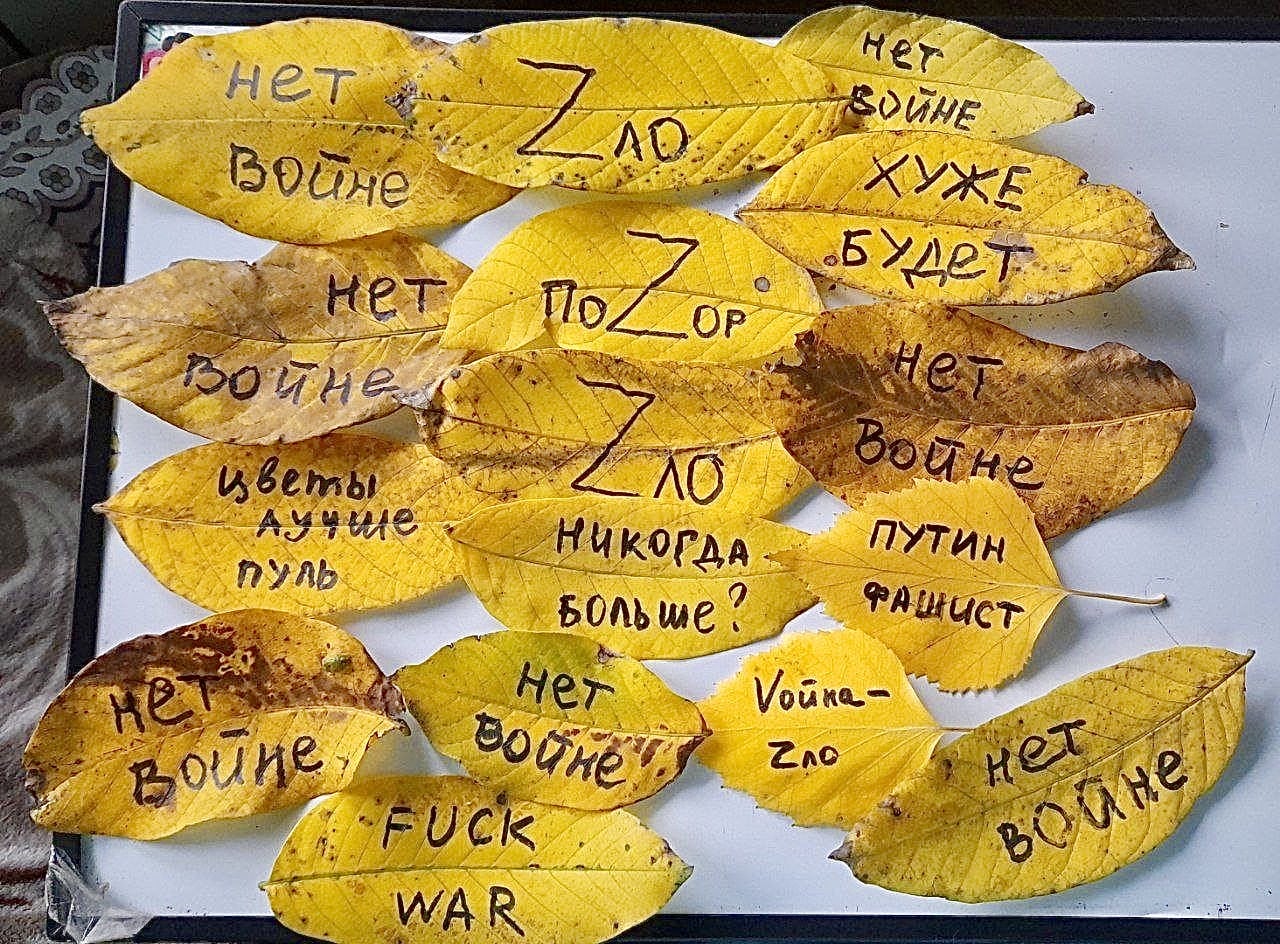 нет
войне
Zло
нет
войне
хуже
будет
нет
войне
поZор
нет
войне
Zло
цветы
лучше
пуль
никогда
больше?
путин
фашист
нет
войне
нет
войне
Vойна-
Zло
нет
войне
FUCK
WAR